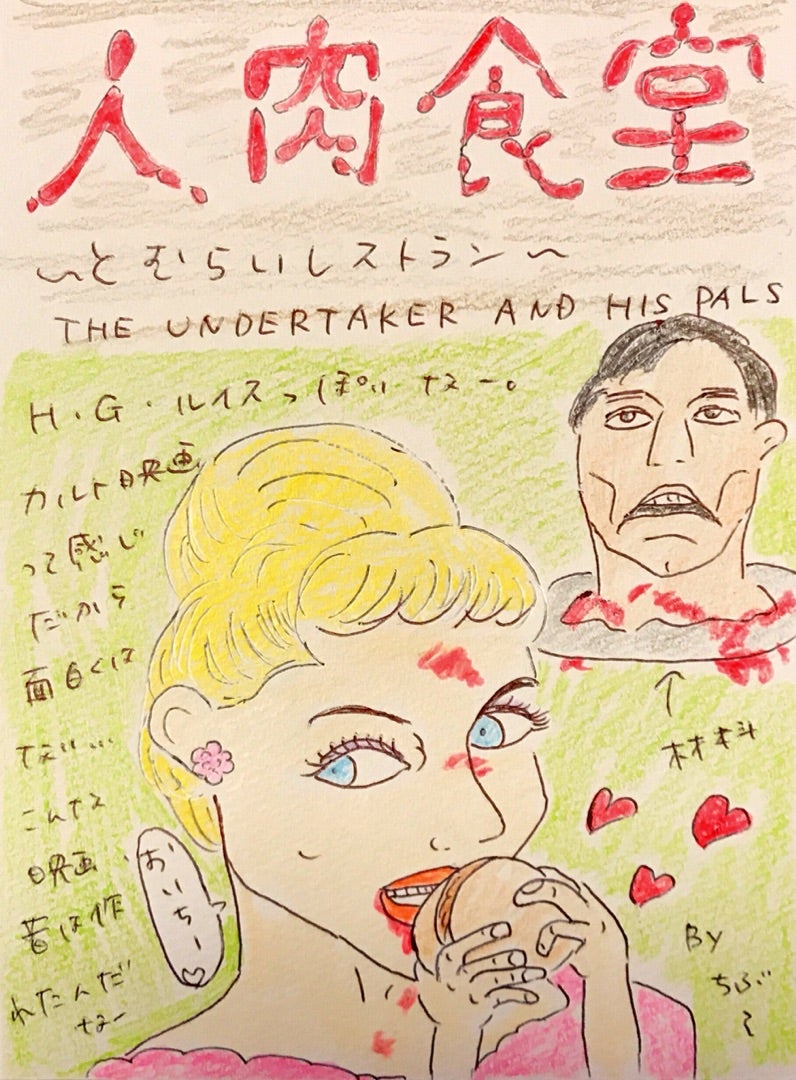 人肉食堂
〜とむらいレストラン〜
THE UNDERTAKER AND HIS PALS
H.G.ルイスっぽいなー。
カルト映画
って感じ
だから
面白くは
ない…
こんな
映画
昔は作
れたんだ
なー
おいちー♡
↑
By
ちぶ〜